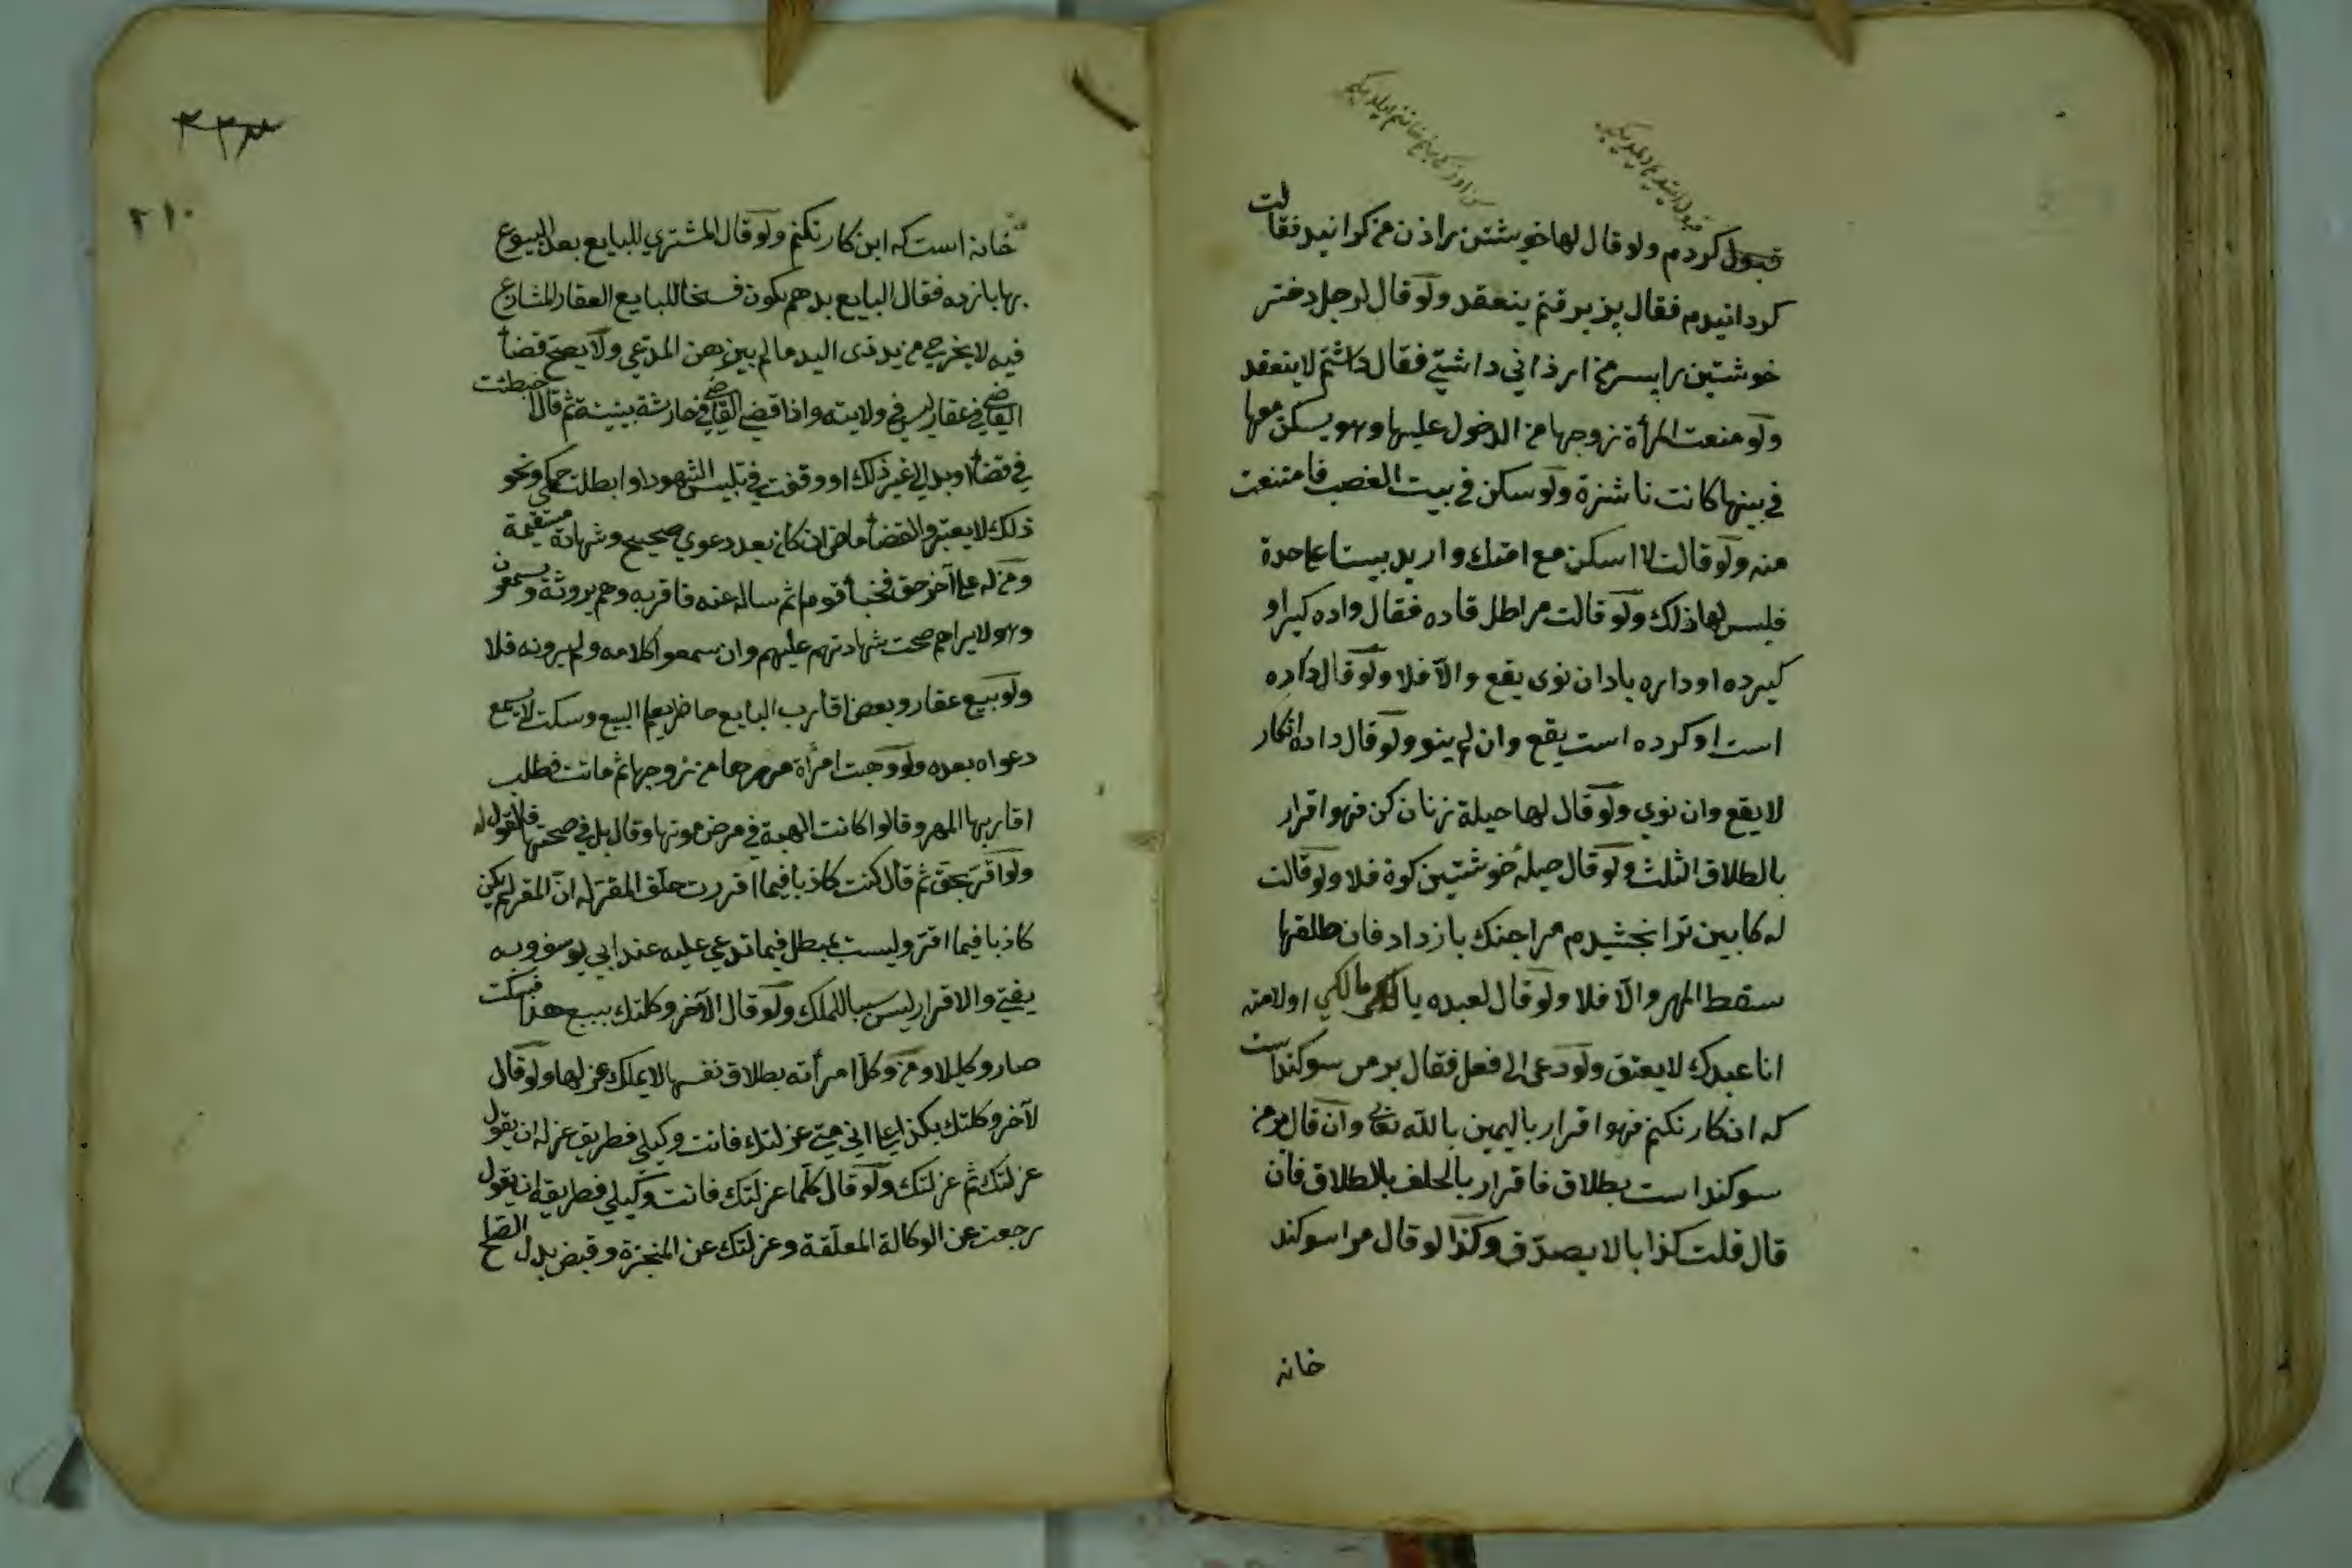 قبول كردم ولو قال لها خويشتن را زن من كردانيد فقالت
كردانيدم فقال پذيرفتم ينعقد ولو قال لرجل دختر
خوشتين را پسر من ارذاني داشتي فقال داشتم لا ينعقد
ولو منعت المرأة زوجها من الدخول عليها وهو يسكن معها
في بيتها كانت ناشزة ولو سكن في بيت الغصب فامتنعت
منه ولو قالت لا اسكن مع امتك واريد بيتا على حدة
فليس لها ذلك ولو قالت مرا طلاق ده فقال داده كير او
كيرده او داده باد ان نوى يقع والا فلا ولو قال داده
است او كرده است يقع وان لم ينو ولو قال داده انكار
لا يقع وان نوى ولو قال لها حيلة زنان كن فهو اقرار
بالطلاق الثلث ولو قال حيلة خوشتين كن فلا ولو قالت
له كابين ترا بخشيدم مرا چنك باز داد فان طلقها
سقط المهر والا فلا ولو قال لعبده يا مالكي او لامته
انا عبدك لا يعتق ولو دعى الى فعل فقال بر من سوكند است
كه اين كار نكنم فهو اقرار باليمين بالله تعالى وان قال بر من
سوكند است بطلاق فاقرار بالحلف بالطلاق فان
قال قلت كذبا لا يصدق وكذا لو قال مرا سوكند
خانه
۲۱۰
خانه است كه اين كار نكنم ولو قال المشتري للبايع بعد البيوع
بها باز ده فقال البايع بدهم يكون فسخا للبايع العقار المتنازع
فيه لا يخرج من يد ذى اليد ما لم يبرهن المدعي ولا يصح قضاء
القاضي في عقار ليس في ولايته واذا قضى القاضي في حادثة ببينة ثم قال اخطئت
في قضاء او بدا لي غير ذلك او وقفت في تلبيس الشهود او ابطلت حكمي ونحو
ذلك لا يعتبر والقضاء ماض ان كان بعد دعوي صحيح وشهادة مستقيمة
ومن له على آخر حق فخبأ قوما ثم ساله عنه فاقر به وهم يرونه ويسمعون
وهو لا يراهم صحت شهادتهم عليهم وان سمعوا كلامه ولم يرونه فلا
ولو بيع عقار وبعض اقارب البايع حاضر يعلم البيع وسكت لا يسمع
دعواه بعده ولو وهبت امرأة مهرها من زوجها ثم ماتت فطلب
اقاربها المهر وقالوا كانت الهبة في مرض موتها وقال بل في صحتها فالقول له
ولو اقر بحق ثم قال كنت كاذبا فيما اقررت حلف المقر له ان المقر لم يكن
كاذبا فيما اقر وليست بمبطل فيما تدعي عليه عند ابي يوسف وبه
يفتي والاقرار ليس سببا للملك ولو قال لآخر وكلتك ببيع هذا فسكت
صار وكيلا ومن وكل امرأته بطلاق نفسها لا يملك عزلها ولو قال
لآخر وكلتك بكذا على اني متى عزلتك فانت وكيلي فطريق عزله ان يقول
عزلتك ثم عزلتك ولو قال كلما عزلتك فانت وكيلي فطريقه ان يقول
رجعت عن الوكالة المعلقة وعزلتك عن المنجزة وقبض بدل الصلح